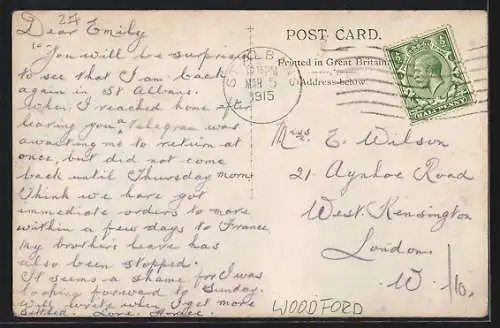 24
Dear Emily
You will be surprised
to see that I am back
again in St Albans.
When I reached home after
leaving you a Telegram was
awaiting me to return at
once, but did not come
back until Thursday morn.
I think we have got
immediate orders to move
within a few days to France,
my brothers leave has
also been stopped.
It seems a shame for I was
looking forward to Sunday.
Will write when I get more
settled. Love.
POST CARD.
Printed in Great Britain.
Address below.
ST ALBANS
MAR 5
1915
HALFPENNY
E. Wilson
21. Aynhoe Road
West. Kensington
London.
W.
WOODFORD